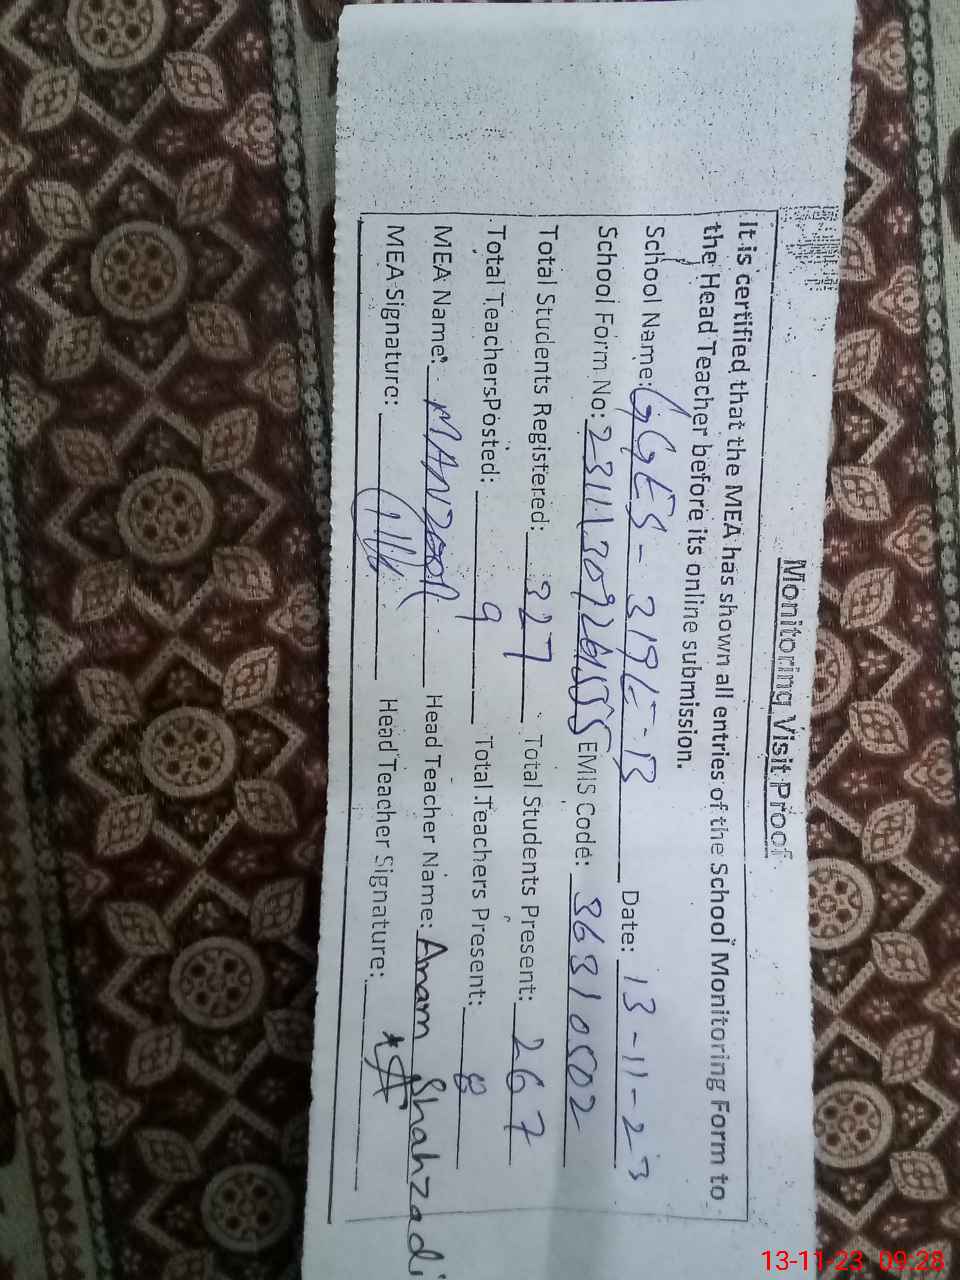 Monitoring Visit Proof
It is certified that the MEA has shown all entries of the School Monitoring Form to
the Head Teacher before its online submission.
School Name: GGES - 319E-B Date: 13-11-23
School Form No: EMIS Code: 36310502
Total Students Registered: 327 Total Students Present: 267
Total TeachersPosted: 9 Total Teachers Present: 8
MEA Name: MANZOOR Head Teacher Name: Anam Shahzadi
MEA Signature: Head Teacher Signature:
13-11-23 09:28